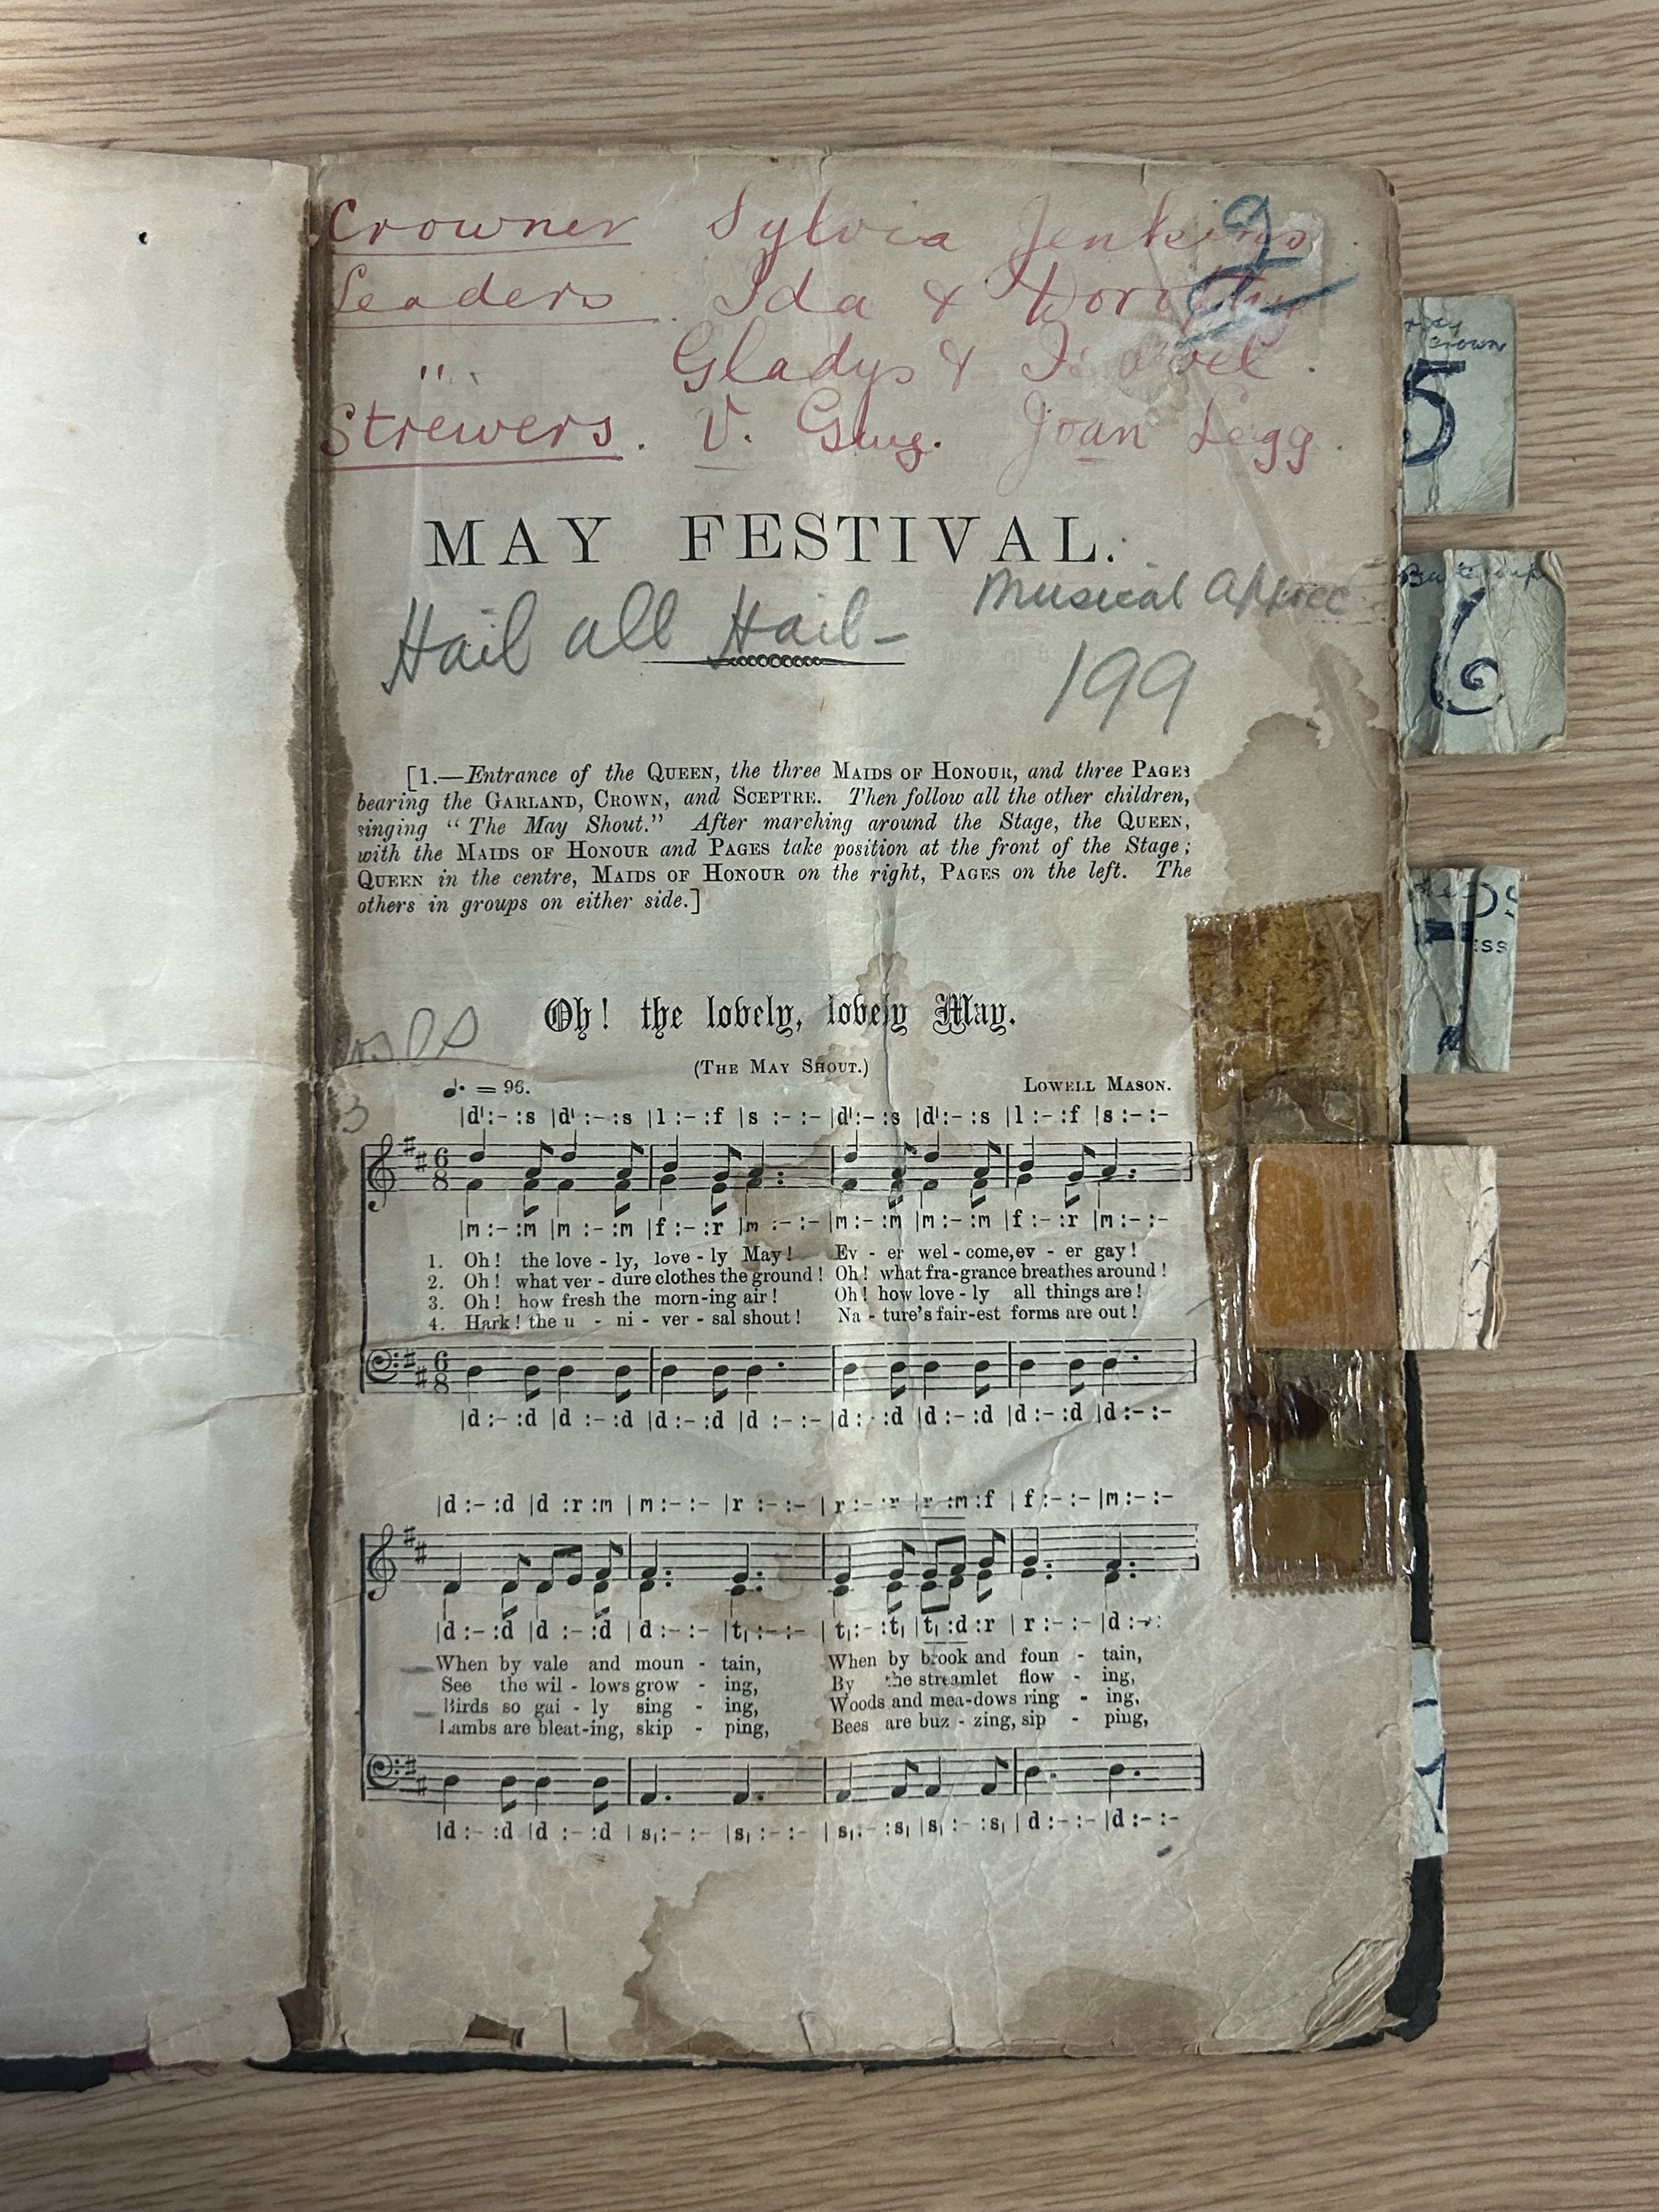 Crowner Sylvia Jenkins.
2
Leaders. Ida & Dorothy
" Gladys & Isobel.
Strewers. V. Joan Legg.
MAY FESTIVAL.
Hail all Hail- Musical Apprec
199
[1.—Entrance of the QUEEN, the three MAIDS OF HONOUR, and three PAGES
bearing the GARLAND, CROWN, and SCEPTRE. Then follow all the other children,
singing "The May Shout." After marching around the Stage, the QUEEN,
with the MAIDS OF HONOUR and PAGES take position at the front of the Stage;
QUEEN in the centre, MAIDS OF HONOUR on the right, PAGES on the left. The
others in groups on either side.]
Oh! the lovely, lovely May.
(THE MAY SHOUT.)
♩. = 96. LOWELL MASON.
|d':- :s |d' :- :s |l :- :f |s :- :- |d':- :s |d':- :s |l :- :f |s :- :-
6 8
|m :- :m |m :- :m |f :- :r |m :- :- |m :- :m |m :- :m |f :- :r |m :- :-
1. Oh! the love - ly, love - ly May! Ev - er wel - come, ev - er gay!
2. Oh! what ver - dure clothes the ground! Oh! what fra-grance breathes around!
3. Oh! how fresh the morn-ing air! Oh! how love - ly all things are!
4. Hark! the u - ni - ver - sal shout! Na - ture's fair-est forms are out!
6 8
|d :- :d |d :- :d |d :- :d |d :- :- |d :- :d |d :- :d |d :- :d |d :- :-
|d :- :d |d :r :m |m :- :- |r :- :- |r :- :r |r :m :f |f :- :- |m :- :-
|d :- :d |d :- :d |d :- :- |t₁ :- :- |t₁ :- :t₁ |t₁ :d :r |r :- :- |d :- :
When by vale and moun - tain, When by brook and foun - tain,
See the wil - lows grow - ing, By the streamlet flow - ing,
Birds so gai - ly sing - ing, Woods and mea-dows ring - ing,
Lambs are bleat-ing, skip - ping, Bees are buz - zing, sip - ping,
|d :- :d |d :- :d |s₁ :- :- |s₁ :- :- |s₁ :- :s₁ |s₁ :- :s₁ |d :- :- |d :- :-
Crown
5
6
ESS